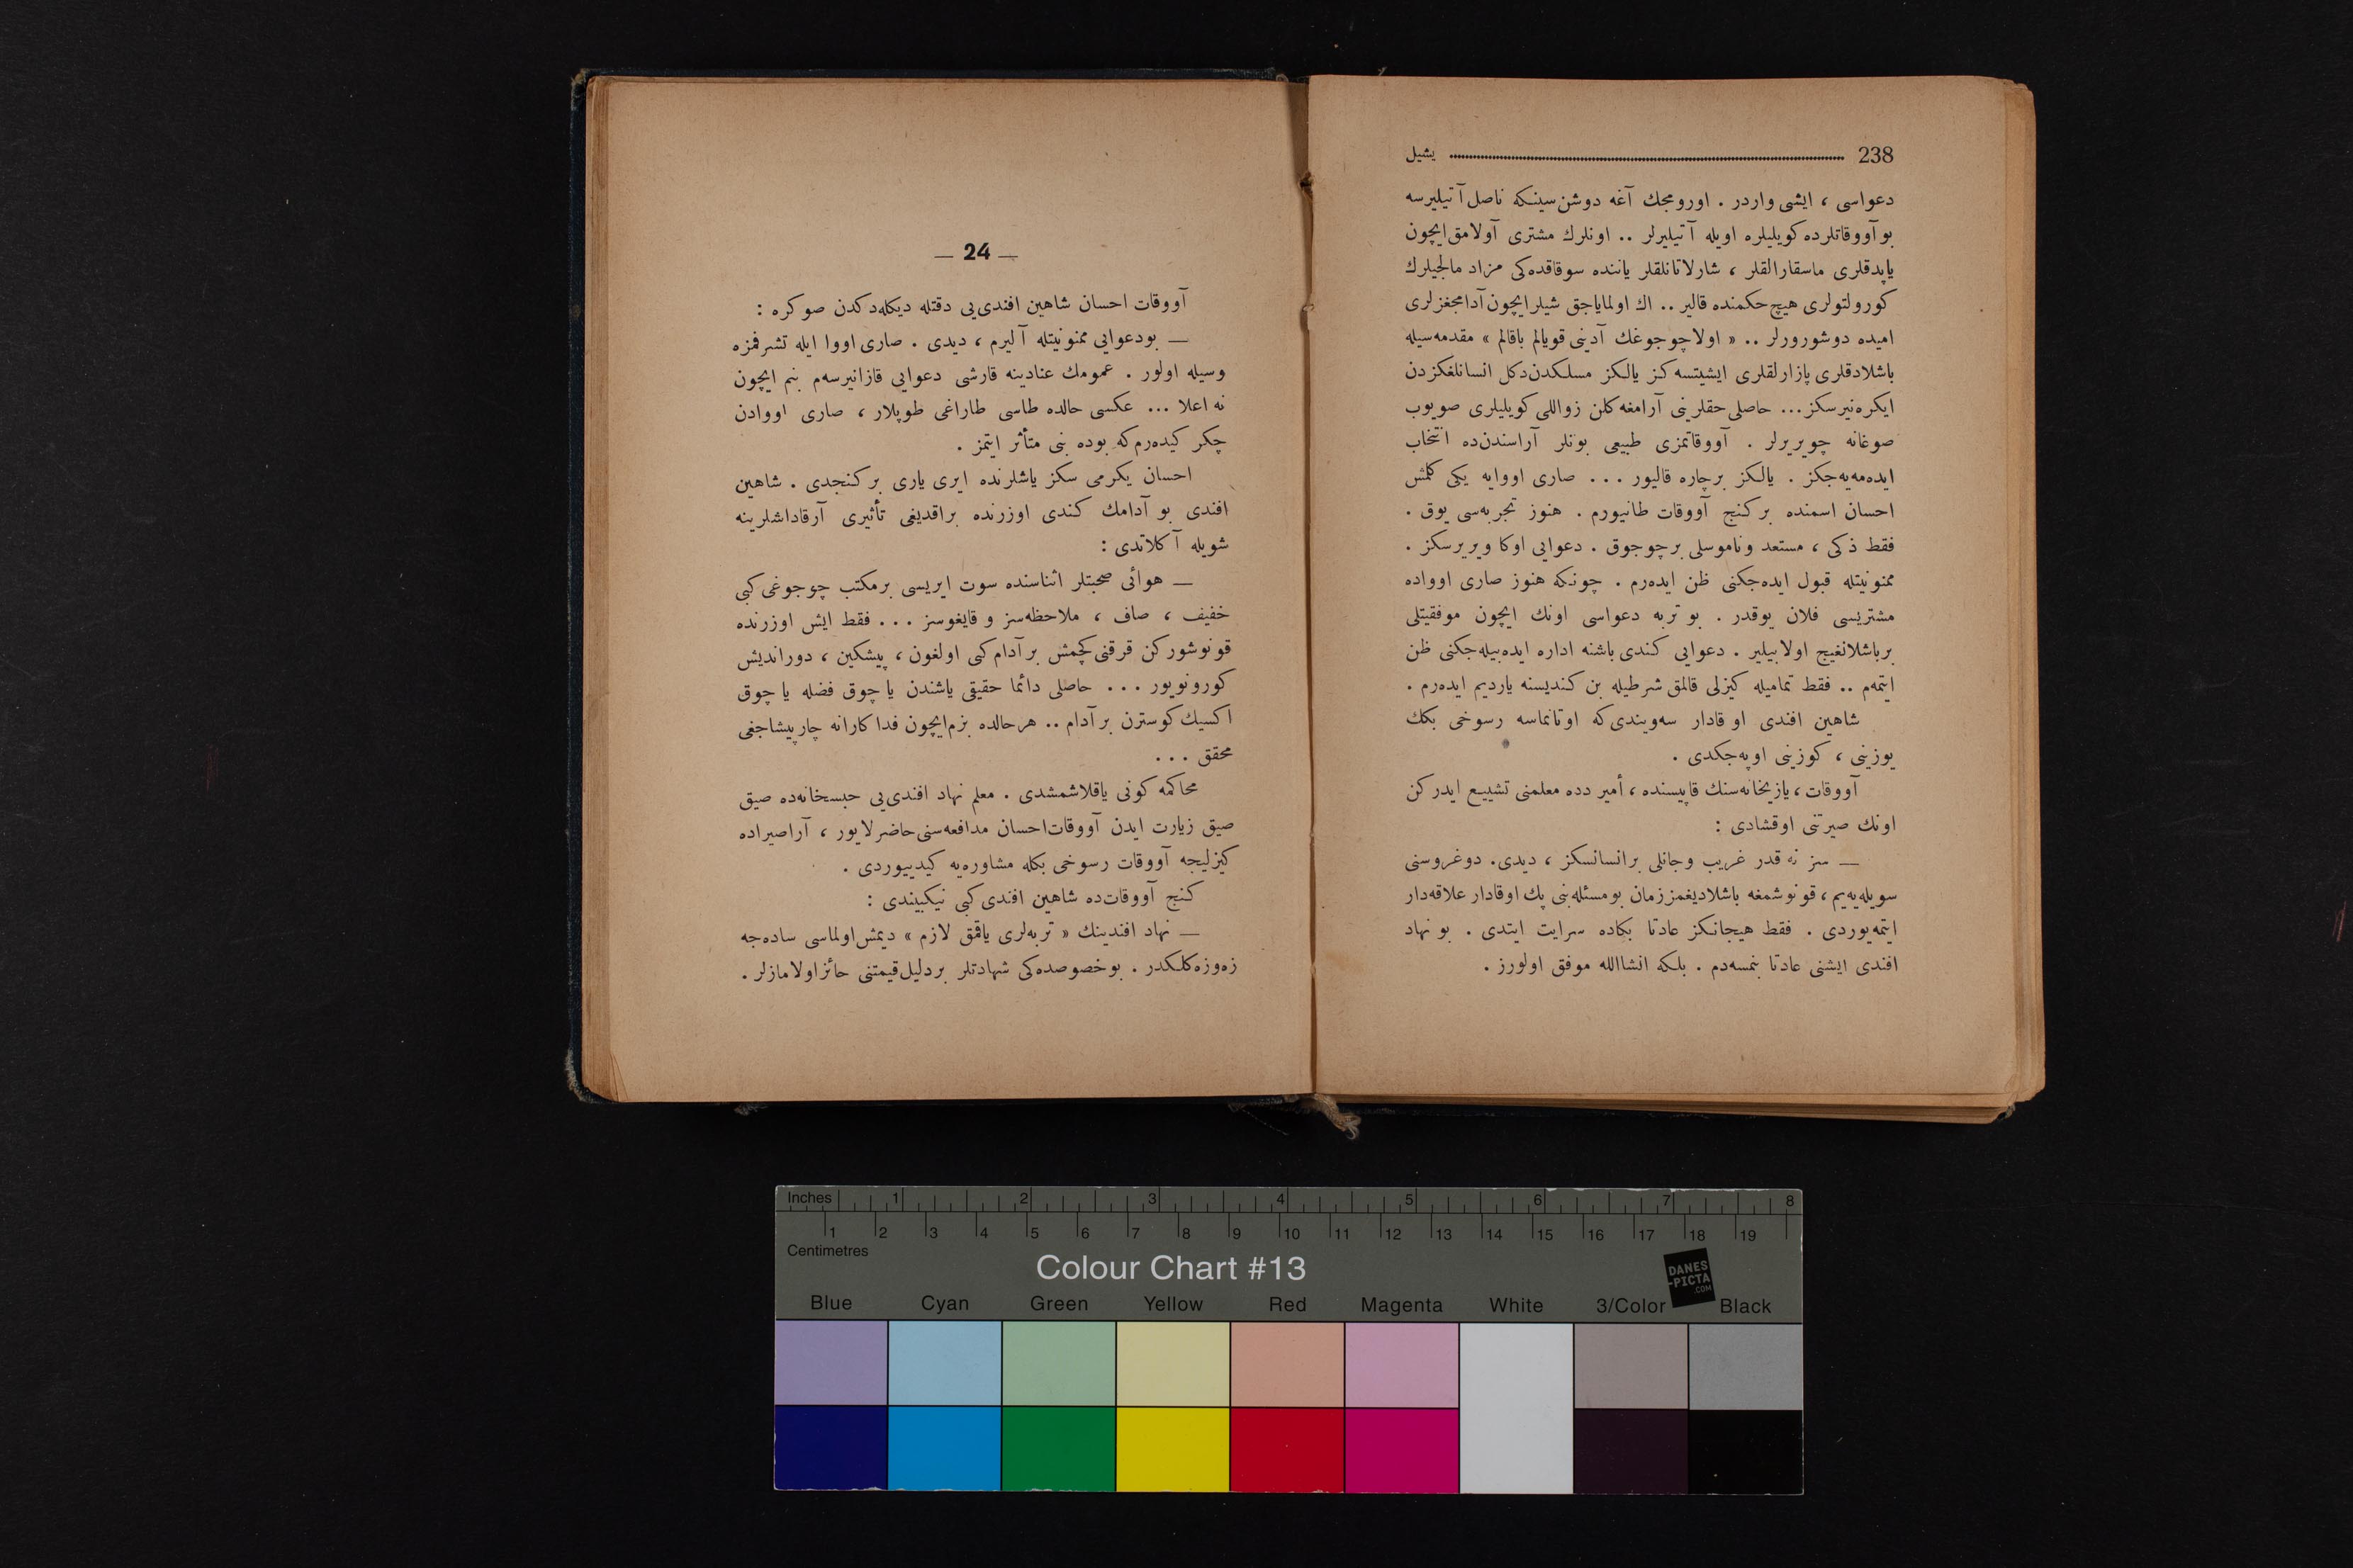 238 يشيل
دعواسی ، ايشی واردر . اورومجك آغه دوشن سينكه ناصل آتيليرسه
بو آووقاتلرده كويليلره اويله آتيليرلر .. اونلرك مشتری آولامق ايچون
ياپدقلری ماسقارالقلر ، شارلاتانلقلر ياننده سوقاقده كی مزاد مالجيلرك
كورولتولری هيچ حكمنده قالير .. اك اولماياجق شيلر ايچون آدامجغزلری
اميده دوشورورلر .. « اولا چوجوغك آدينی قويالم باقالم » مقدمه سيله
باشلادقلری پازارلقلری ايشيتسه كز يالكز مسلكدن دكل انسانلغكزدن
ايكره نيرسكز ... حاصلی حقلرينی آرامغه كلن زواللی كويليلری صويوب
صوغانه چويريرلر . آووقاتمزی طبيعی بونلر آراسندن ده انتخاب
ايده مه يه جكز . يالكز برچاره قاليور ... صاری اووايه يكی كلمش
احسان اسمنده بر كنج آووقات طانيورم . هنوز تجربه سی يوق .
فقط ذكی ، مستعد وناموسلی برچوجوق . دعوايی اوكا ويريرسكز .
ممنونيتله قبول ايده جكنی ظن ايده رم . چونكه هنوز صاری اوواده
مشتريسی فلان يوقدر . بو تربه دعواسی اونك ايچون موفقيتلی
برباشلانغيج اولابيلير . دعوايی كندی باشنه اداره ايده بيله جكنی ظن
ايتمه م .. فقط تماميله كيزلی قالمق شرطيله بن كنديسنه يارديم ايده رم .
شاهين افندی او قادار سه ويندی كه اوتانماسه رسوخی بكك
يوزينی ، كوزينی اوپه جكدی .
آووقات ، يازيخانه سنك قاپيسنده ، أمير دده معلمنی تشييع ايدركن
اونك صيرتنی اوقشادی :
— سز نه قدر غريب وجانلی برانسانسكز ، ديدی. دوغروسنی
سويله يه يم ، قونوشمغه باشلاديغمز زمان بومسئله بنی پك اوقادار علاقه دار
ايتمه يوردی . فقط هيجانكز عادتا بكاده سرايت ايتدی . بو نهاد
افندی ايشنی عادتا بنمسه دم . بلكه انشاالله موفق اولورز .
— 24 —
آووقات احسان شاهين افندی يی دقتله ديكله دكدن صوكره :
— بودعوايی ممنونيتله آليرم ، ديدی . صاری اووا ايله تشرفمزه
وسيله اولور . عمومك عنادينه قارشی دعوايی قازانيرسه م بنم ايچون
نه اعلا ... عكسی حالده طاسی طاراغی طوپلار ، صاری اووادن
چكر كيده رم كه بوده بنی متأثر ايتمز .
احسان يكرمی سكز ياشلرنده ايری ياری بر كنجدی . شاهين
افندی بو آدامك كندی اوزرنده براقديغی تأثيری آرقاداشلرينه
شويله آكلاتدی :
— هوائی صحبتلر اثناسنده سوت ايريسی برمكتب چوجوغی كبی
خفيف ، صاف ، ملاحظه سز و قايغوسز ... فقط ايش اوزرنده
قونوشوركن قرقنی كچمش بر آدام كبی اولغون ، پيشكين ، دورانديش
كورونويور ... حاصلی دائما حقيقی ياشندن يا چوق فضله يا چوق
اكسيك كوسترن بر آدام .. هرحالده بزم ايچون فداكارانه چارپيشاجغی
محقق ...
محاكمه كونی ياقلاشمشدی . معلم نهاد افندی يی حبسخانه ده صيق
صيق زيارت ايدن آووقات احسان مدافعه سنی حاضرلايور ، آراصيراده
كيزليجه آووقات رسوخی بكله مشاوره يه كيدييوردی .
كنج آووقات ده شاهين افندی كبی نيكبيندی :
— نهاد افندينك « تربه لری ياقمق لازم » ديمش اولماسی ساده جه
زه وزه كلكدر . بو خصوصده كی شهادتلر بر دليل قيمتنی حائز اولامازلر .
Inches 1 2 3 4 5 6 7 8
1 2 3 4 5 6 7 8 9 10 11 12 13 14 15 16 17 18 19
Centimetres
Colour Chart #13
DANES
-PICTA
.COM
Blue Cyan Green Yellow Red Magenta White 3/Color Black